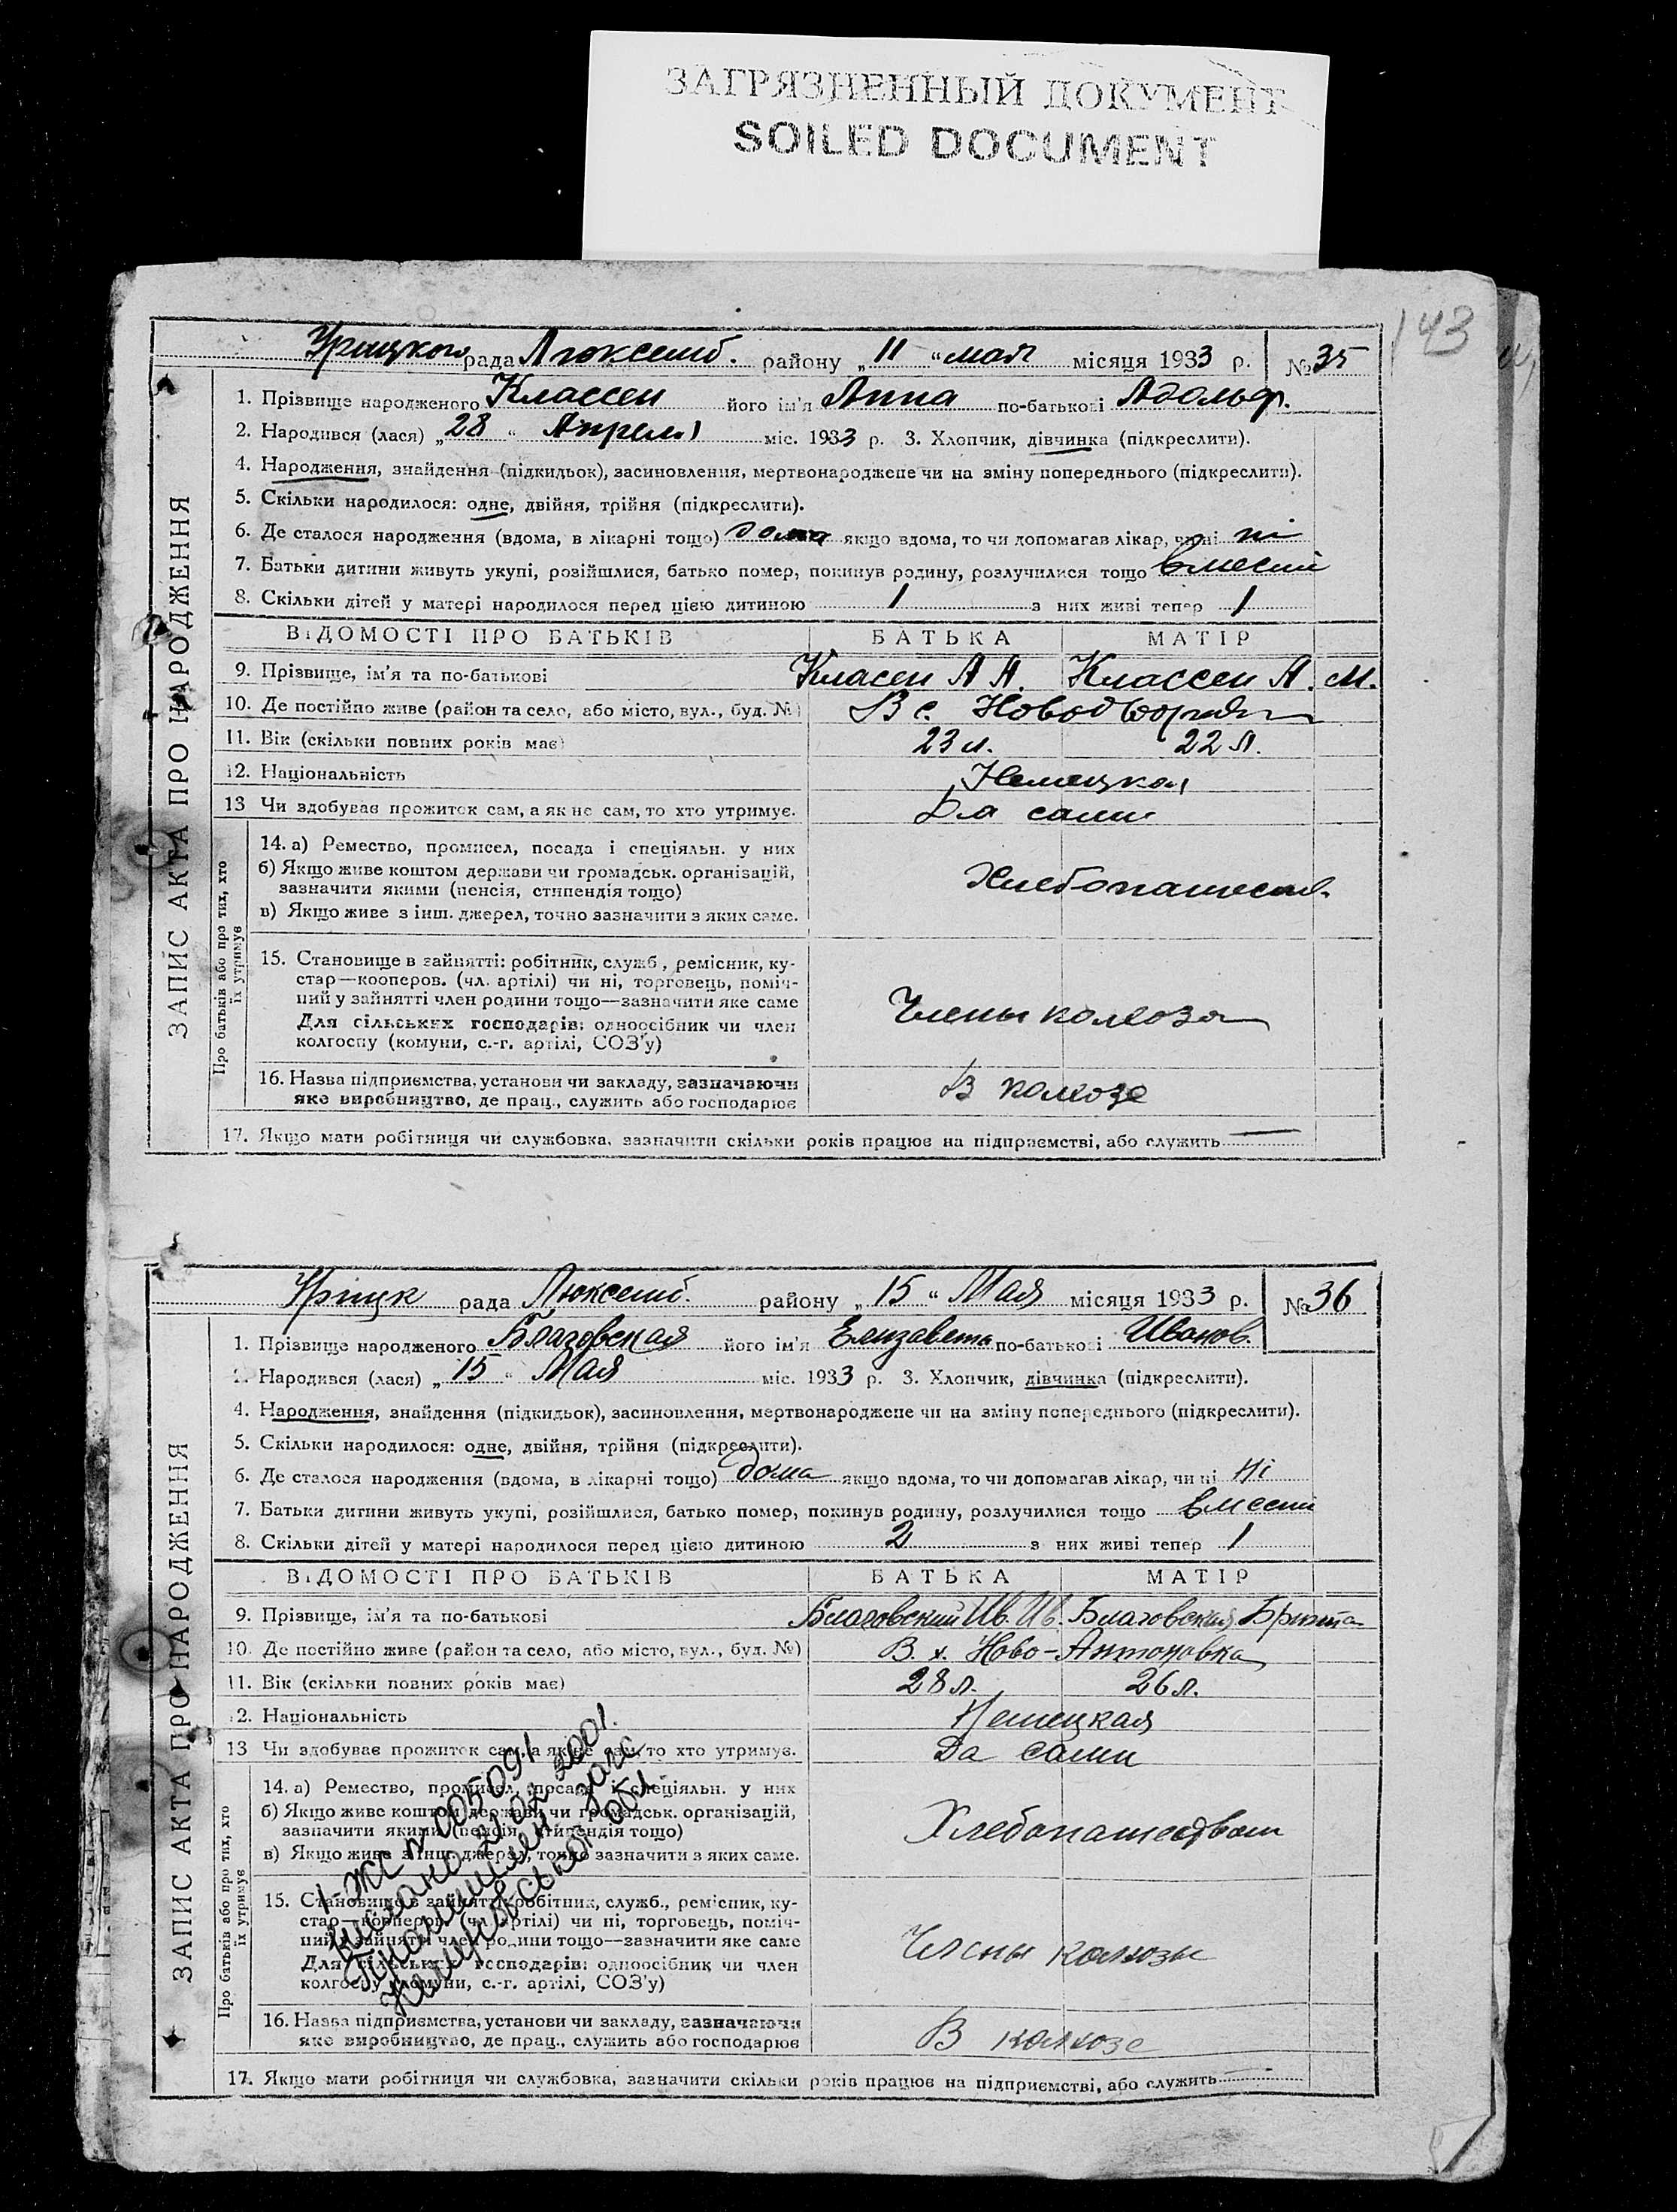 ЗАГРЯЗНЕННЫЙ ДОКУМЕНТ
SOILED DOCUMENT
143
Урицкого рада Люксемб. району „11“ мая місяця 1933 р. № 35
ЗАПИС АКТА ПРО НАРОДЖЕННЯ
1. Прізвище народженого Классен його ім'я Анна по-батькові Адольф.
2. Народився (лася) „28“ Апреля міс. 1933 р. 3. Хлопчик, дівчинка (підкреслити).
4. Народження, знайдення (підкидьок), засиновлення, мертвонароджене чи на зміну попереднього (підкреслити).
5. Скільки народилося: одне, двійня, трійня (підкреслити).
6. Де сталося народження (вдома, в лікарні тощо) дома якщо вдома, то чи допомагав лікар, чи ні ні
7. Батьки дитини живуть укупі, розійшлися, батько помер, покинув родину, розлучилися тощо вмести
8. Скільки дітей у матері народилося перед цією дитиною 1 з них живі тепер 1
ВІДОМОСТІ ПРО БАТЬКІВ БАТЬКА МАТІР
9. Прізвище, ім'я та по-батькові Класен А А. Классен А. М.
10. Де постійно живе (район та село, або місто, вул., буд. №) В с.
11. Вік (скільки повних років має) 23 л. 22 л.
12. Національність Немецкая
13 Чи здобуває прожиток сам, а як не сам, то хто утримує. Да сами
Про батьків або про тих, хто
їх утримує
14. а) Ремество, промисел, посада і спеціяльн. у них
б) Якщо живе коштом держави чи громадськ. організацій,
зазначити якими (пенсія, стипендія тощо)
Хлебопашеств.
в) Якщо живе з інш. джерел, точно зазначити з яких саме.
15. Становище в зайнятті: робітник, служб., ремісник, ку-
стар—кооперов. (чл. артілі) чи ні, торговець, поміч-
ний у зайнятті член родини тощо—зазначити яке саме
Для сільських господарів: одноосібник чи член
колгоспу (комуни, с.-г. артілі, СОЗ'у)
Члены колхоза
16. Назва підприємства, установи чи закладу, зазначаючи
яке виробництво, де прац., служить або господарює
В колхозе
17. Якщо мати робітниця чи службовка, зазначити скільки років працює на підприємстві, або служить —
Урицк рада Люксемб. району „15“ Мая місяця 1933 р. № 36
ЗАПИС АКТА ПРО НАРОДЖЕННЯ
1. Прізвище народженого Благовская його ім'я Елизавета по-батькові Иванов.
2. Народився (лася) „15“ Мая міс. 1933 р. 3. Хлопчик, дівчинка (підкреслити).
4. Народження, знайдення (підкидьок), засиновлення, мертвонароджене чи на зміну попереднього (підкреслити).
5. Скільки народилося: одне, двійня, трійня (підкреслити).
6. Де сталося народження (вдома, в лікарні тощо) дома якщо вдома, то чи допомагав лікар, чи ні ні
7. Батьки дитини живуть укупі, розійшлися, батько помер, покинув родину, розлучилися тощо вмести
8. Скільки дітей у матері народилося перед цією дитиною 2 з них живі тепер 1
ВІДОМОСТІ ПРО БАТЬКІВ БАТЬКА МАТІР
9. Прізвище, ім'я та по-батькові Благовский Ив. Ив. Благовская
10. Де постійно живе (район та село, або місто, вул., буд. №) В х. Ново-Антоновка
11. Вік (скільки повних років має) 28 л. 26 л.
12. Національність Немецкая
13 Чи здобуває прожиток сам, а як не сам, то хто утримує. Да сами
Про батьків або про тих, хто
їх утримує
14. а) Ремество, промисел, посада і спеціяльн. у них
б) Якщо живе коштом держави чи громадськ. організацій,
зазначити якими (пенсія, стипендія тощо)
Хлебопашеством
в) Якщо живе з інш. джерел, точно зазначити з яких саме.
15. Становище в зайнятті: робітник, служб., ремісник, ку-
стар—кооперов. (чл. артілі) чи ні, торговець, поміч-
ний у зайнятті член родини тощо—зазначити яке саме
Для сільських господарів: одноосібник чи член
колгоспу (комуни, с.-г. артілі, СОЗ'у)
Члены колхозы
16. Назва підприємства, установи чи закладу, зазначаючи
яке виробництво, де прац., служить або господарює
В колхозе
17. Якщо мати робітниця чи службовка, зазначити скільки років працює на підприємстві, або служить —
1-ЖС № 005091
21.02.2001.
загс
обл